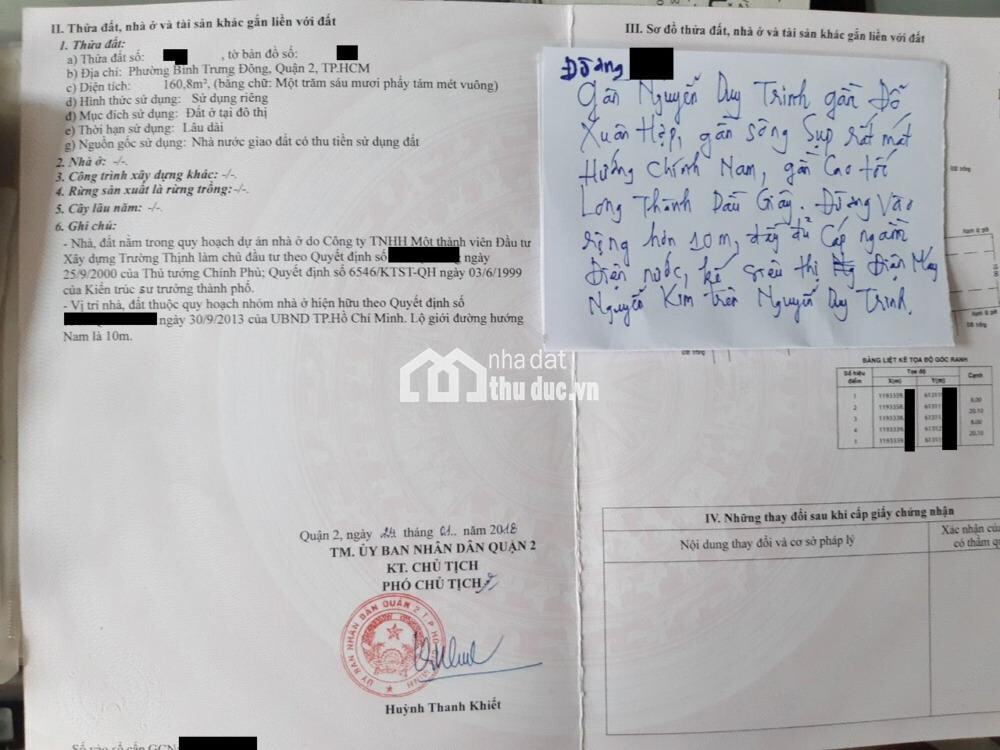 II. Thửa đất, nhà ở và tài sản khác gắn liền với đất
1. Thửa đất:
a) Thửa đất số: , tờ bản đồ số:
b) Địa chỉ: Phường Bình Trưng Đông, Quận 2, TP.HCM
c) Diện tích: 160,8m², (bằng chữ: Một trăm sáu mươi phẩy tám mét vuông)
d) Hình thức sử dụng: Sử dụng riêng
đ) Mục đích sử dụng: Đất ở tại đô thị
e) Thời hạn sử dụng: Lâu dài
g) Nguồn gốc sử dụng: Nhà nước giao đất có thu tiền sử dụng đất
2. Nhà ở: -/-.
3. Công trình xây dựng khác: -/-.
4. Rừng sản xuất là rừng trồng:-/-.
5. Cây lâu năm: -/-.
6. Ghi chú:
- Nhà, đất nằm trong quy hoạch dự án nhà ở do Công ty TNHH Một thành viên Đầu tư
Xây dựng Trường Thịnh làm chủ đầu tư theo Quyết định số ngày
25/9/2000 của Thủ tướng Chính Phủ; Quyết định số 6546/KTST-QH ngày 03/6/1999
của Kiến trúc sư trưởng thành phố.
- Vị trí nhà, đất thuộc quy hoạch nhóm nhà ở hiện hữu theo Quyết định số
ngày 30/9/2013 của UBND TP.Hồ Chí Minh. Lộ giới đường hướng
Nam là 10m.
Quận 2, ngày 24 tháng 01.. năm 2018
TM. ỦY BAN NHÂN DÂN QUẬN 2
KT. CHỦ TỊCH
PHÓ CHỦ TỊCH
ỦY BAN NHÂN DÂN QUẬN 2 T.P HỒ CHÍ MINH
Huỳnh Thanh Khiết
Số vào sổ cấp GCN:
nhà đất
thu duc.vn
III. Sơ đồ thửa đất, nhà ở và tài sản khác gắn liền với đất
Đường
Gần Nguyễn Duy Trinh gần Đỗ
Xuân Hợp, gần sông Sụp rất mát
Hướng Chính Nam, gần Cao tốc
Long Thành Dầu Giây. Đường Vào
rộng hơn 10m, đầy đủ Cáp ngầm
Điện nước, kế siêu thị Điện Máy
Nguyễn Kim trên Nguyễn Duy Trinh.
Đất trống
Đất trống
Đất trống
BẢNG LIỆT KÊ TỌA ĐỘ GÓC RANH
Số hiệu điểm Tọa độ Cạnh
X(m) Y(m)
1 1193339. 61311
8.00
2 1193358. 61311
20.10
3 1193338. 61315
8.00
4 1193339. 61312
20.10
1 1193339 61311
IV. Những thay đổi sau khi cấp giấy chứng nhận
Nội dung thay đổi và cơ sở pháp lý
Xác nhận của
có thẩm qu